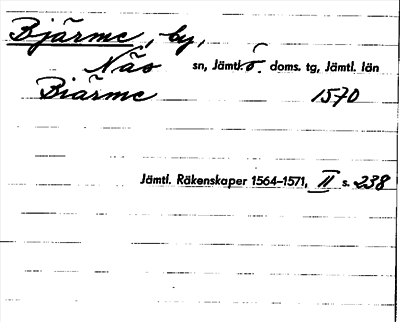 Bjärme, by,
Näs sn, Jämtl. ö. doms. tg, Jämtl. län
Biärme 1570
Jämtl. Räkenskaper 1564–1571, II s. 238